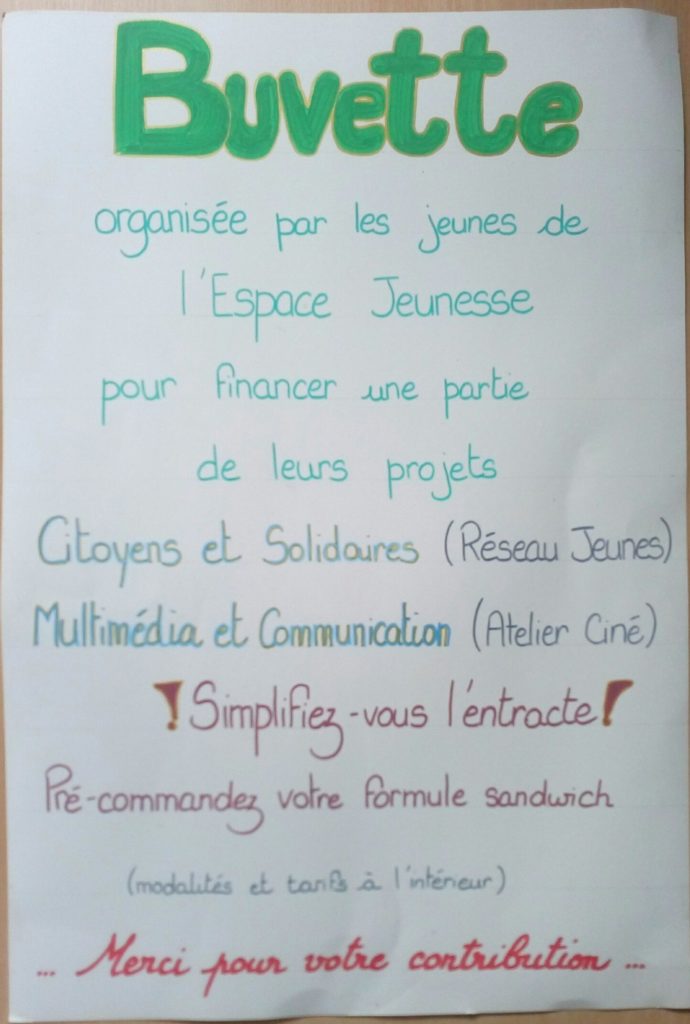 Buvette
organisée par les jeunes de
l'Espace Jeunesse
pour financer une partie
de leurs projets
Citoyens et Solidaires (Réseau Jeunes)
Multimédia et Communication (Atelier Ciné)
! Simplifiez-vous l'entracte !
Pré-commandez votre formule sandwich
(modalités et tarifs à l'intérieur)
... Merci pour votre contribution ...